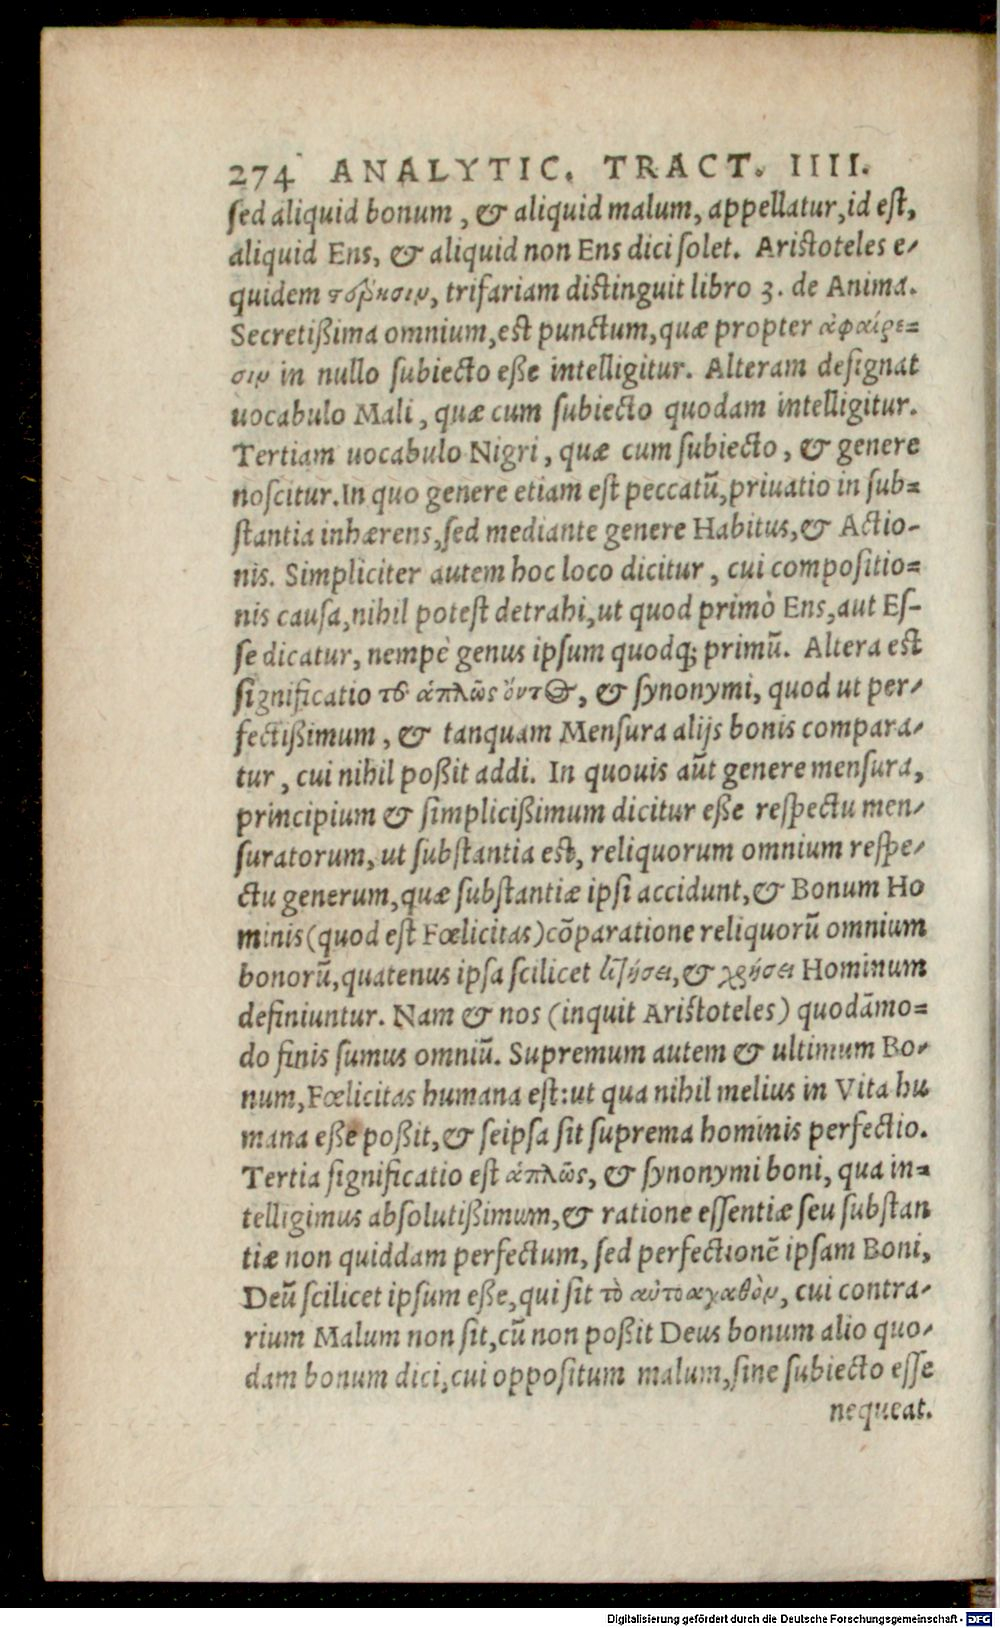 274 ANALYTIC. TRACT. IIII.
sed aliquid bonum, & aliquid malum, appellatur, id est,
aliquid Ens, & aliquid non Ens dici solet. Aristoteles e-
quidem στέρησιν, trifariam distinguit libro 3. de Anima.
Secretißima omnium, est punctum, quæ propter ἀφαίρε=
σιν in nullo subiecto eße intelligitur. Alteram designat
uocabulo Mali, quæ cum subiecto quodam intelligitur.
Tertiam uocabulo Nigri, quæ cum subiecto, & genere
noscitur. In quo genere etiam est peccatũ, priuatio in sub=
stantia inhærens, sed mediante genere Habitus, & Actio-
nis. Simpliciter autem hoc loco dicitur, cui compositio=
nis causa, nihil potest detrahi, ut quod primò Ens, aut Es-
se dicatur, nempè genus ipsum quodq; primũ. Altera est
significatio τοῦ ἁπλῶς ὄντος, & synonymi, quod ut per-
fectißimum, & tanquam Mensura alijs bonis compara-
tur, cui nihil poßit addi. In quouis aũt genere mensura,
principium & simplicißimum dicitur eße respectu men-
suratorum, ut substantia est, reliquorum omnium respe-
ctu generum, quæ substantiæ ipsi accidunt, & Bonum Ho
minis (quod est Fœlicitas) cõparatione reliquorũ omnium
bonorũ, quatenus ipsa scilicet κτήσει, & χρήσει Hominum
definiuntur. Nam & nos (inquit Aristoteles) quodãmo=
do finis sumus omniũ. Supremum autem & ultimum Bo-
num, Fœlicitas humana est: ut qua nihil melius in Vita hu
mana eße poßit, & seipsa sit suprema hominis perfectio.
Tertia significatio est ἁπλῶς, & synonymi boni, qua in=
telligimus absolutißimum, & ratione essentiæ seu substan
tiæ non quiddam perfectum, sed perfectionẽ ipsam Boni,
Deũ scilicet ipsum eße, qui sit τὸ αὐτοαγαθὸν, cui contra-
rium Malum non sit, cũ non poßit Deus bonum alio quo-
dam bonum dici, cui oppositum malum, sine subiecto esse
nequeat.
Digitalisierung gefördert durch die Deutsche Forschungsgemeinschaft - DFG